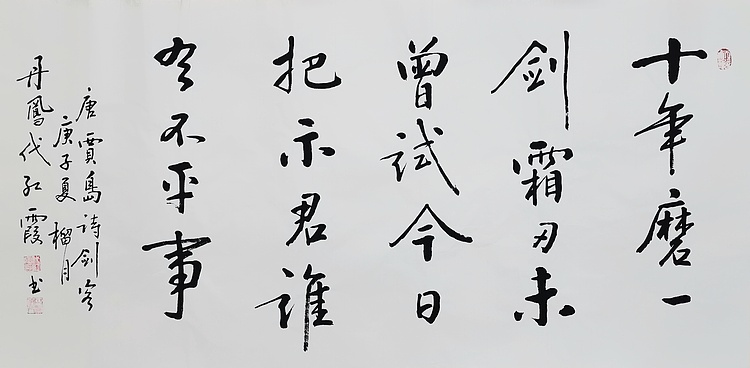 十年磨一
剑霜刃未
曾試今日
把示君誰
有不平事
唐賈島詩剑客
庚子夏榴月
丹鳳代红霞书